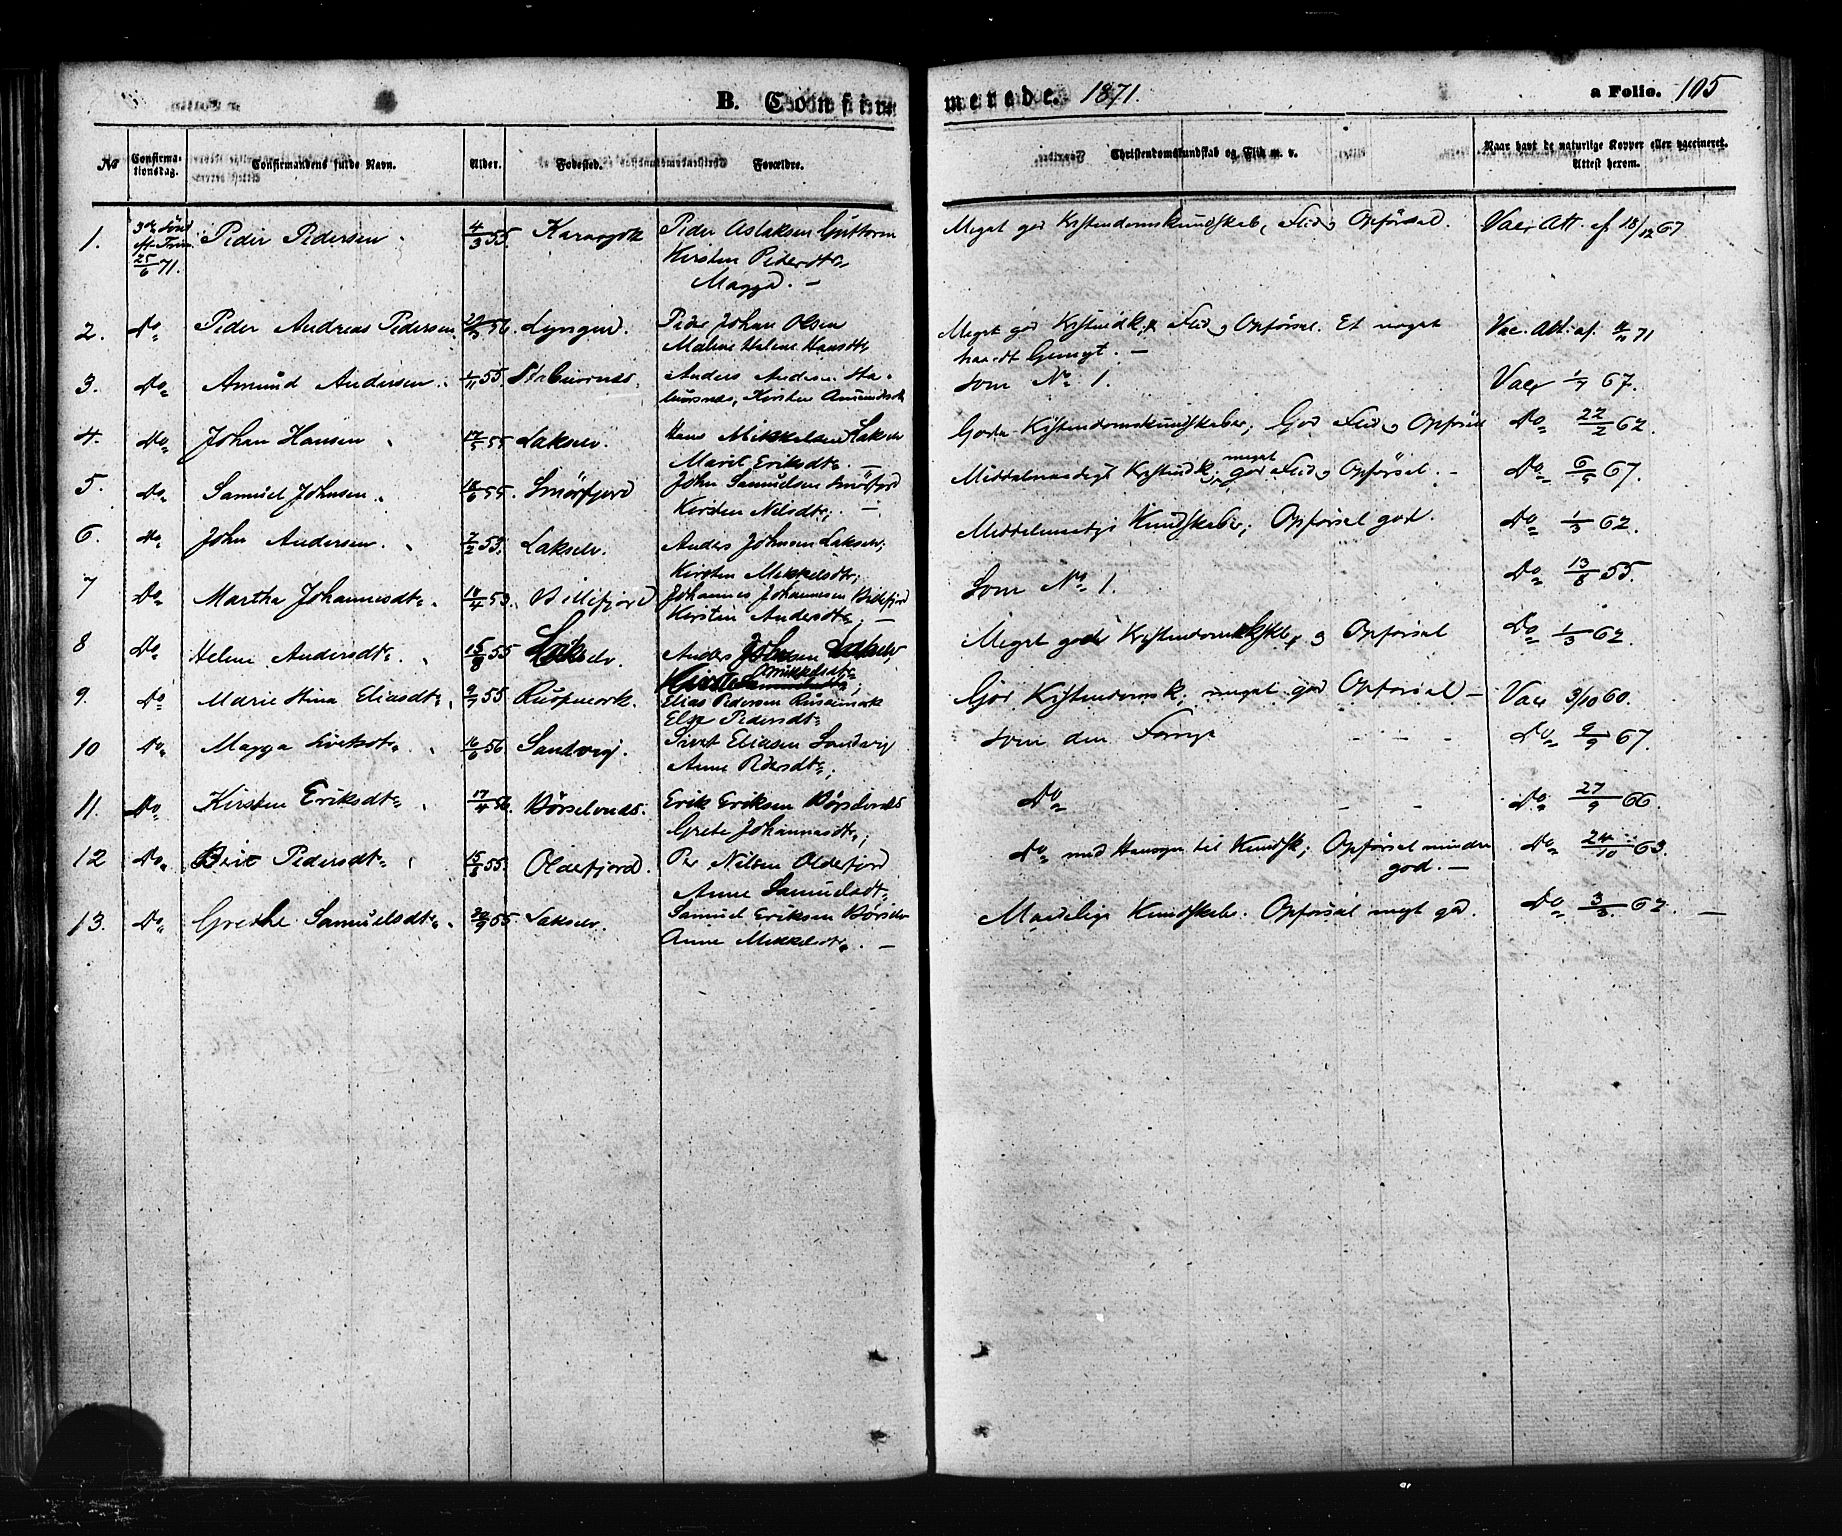 B. Confirmerede. 1871. a Folio. 105
No Confirmationsdag. Confirmandens fulde Navn. Alder. Fødested. Forældre. Christendomskundskab og Flid m. v. Naar havt de naturlige Kopper eller vaccineret. Attest herom.
1. 3die Sønd. Peder Pedersen 4/3 55. Karasjok Peder Aslaksen Guttorm Meget god Kristendomskundskab, Flid og Opførsel. Vac. Att. af 18/12 67
ef. Trin. Kirsten Pedersdtr.
25/6 71. Magga. —
2. Do Peder Andreas Pedersen 56. Lyngen. Peder Johan Olsen Meget god Kristendk., Flid og Opførsel. Et noget Vac. Att. af 71
Malene Helene Hansdtr. haardt Gemyt. —
3. Do Amund Andersen 1/11 55 Stabursnes. Anders Andersen Sta- Som No 1. Vac. 1/7 67.
bursnes, Kirsten Amundsdtr
4. Do Johan Hansen 17/5 55 Lakselv. Hans Mikkelsen Lakselv Gode Kristendomskundskaber; God Flid og Opførsel Do 22/2 62.
Marit Eriksdtr. —
5. Do Samuel Johnsen. 18/6 55. Smørfjord John Samuelsen Smørfjord Middelmaadige Kristendk., meget god Flid og Opførsel. - Do 6/5 67.
Kirsten Nilsdtr; —
6. Do John Andersen. 7/2 55. Lakselv. Anders Johnsen Lakselv, Middelmaadige Kundskaber; Opførsel god. Do 1/3 62.
Kirsten Mikkelsdtr;
7 Do Martha Johannesdtr. 18/4 53. Billefjord Johannes Johannesen Billefjord Som No 1. Do 13/8 55.
Kirsten Andersdtr; —
8 Do Helene Andersdtr. 15/8 55 Lakselv. Anders Johnsen Lakselv Meget gode Kristendomskdsk., og Opførsel Do 1/3 62.
Kirsten Mikkelsdtr;
9. Do Marie Stina Eliasdtr. 9/7 55. Elias Pedersen God Kristendomsk; meget god Opførsel — Vac 3/10 60.
Else Pedersdtr
10 Do Magga Sivertsdtr. 16/6 56. Sandvig. Sivert Eliasen Sandvig Som den Forrige - - - Do 9/9 67.
Anne Pedersdtr;
11. Do Kirsten Eriksdtr. 17/4 56. Børselvnes. Erik Eriksen Børselvnes Do - - - Do 27/9 66.
Grete Johannesdtr;
12 Do Berit Pedersdtr. 15/8 55. Oldefjord. Per Nilsen Oldefjord Do med Hensyn til Kundsk; Opførsel mindre Do 24/10 63.
Anne Samuelsdtr, god. —
13. Do Grethe Samuelsdtr. 29/9 55 Lakselv. Samuel Eriksen Børselv Maadelige Kundskaber. Opførsel meget god. Do 3/3 62. —
Anne Mikkelsdtr. —